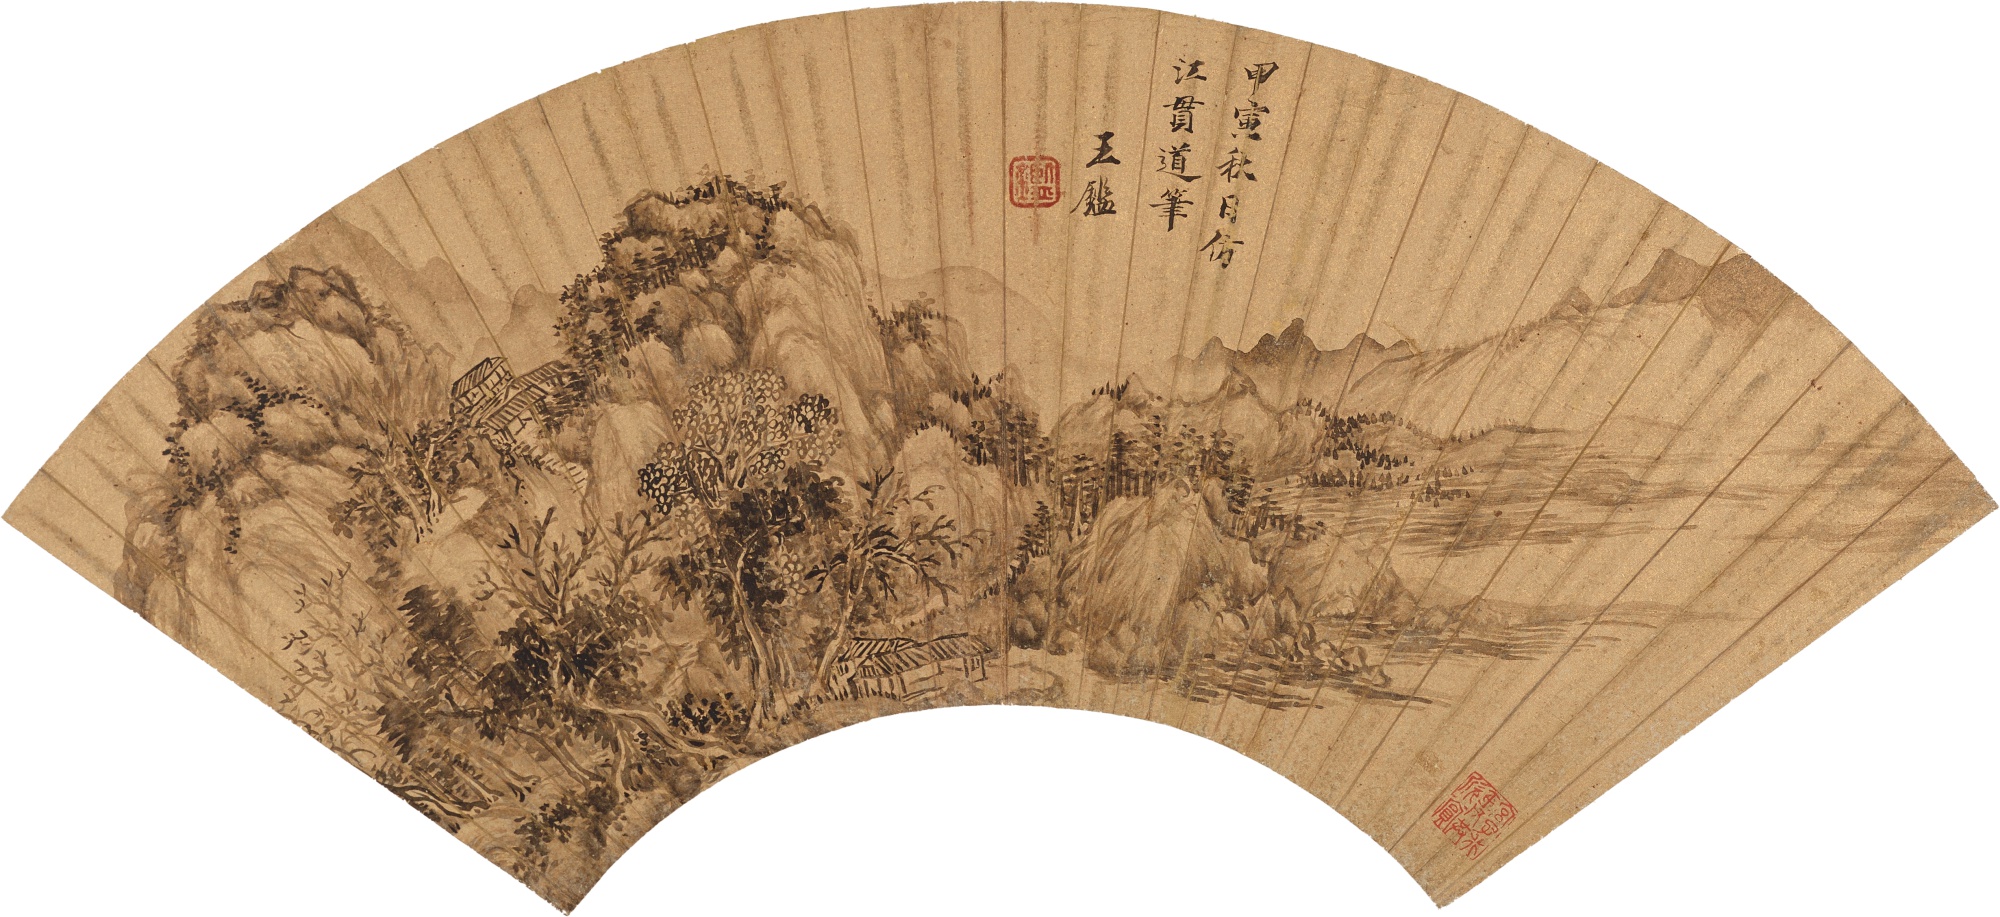 甲寅秋日仿
江貫道筆
王鑑